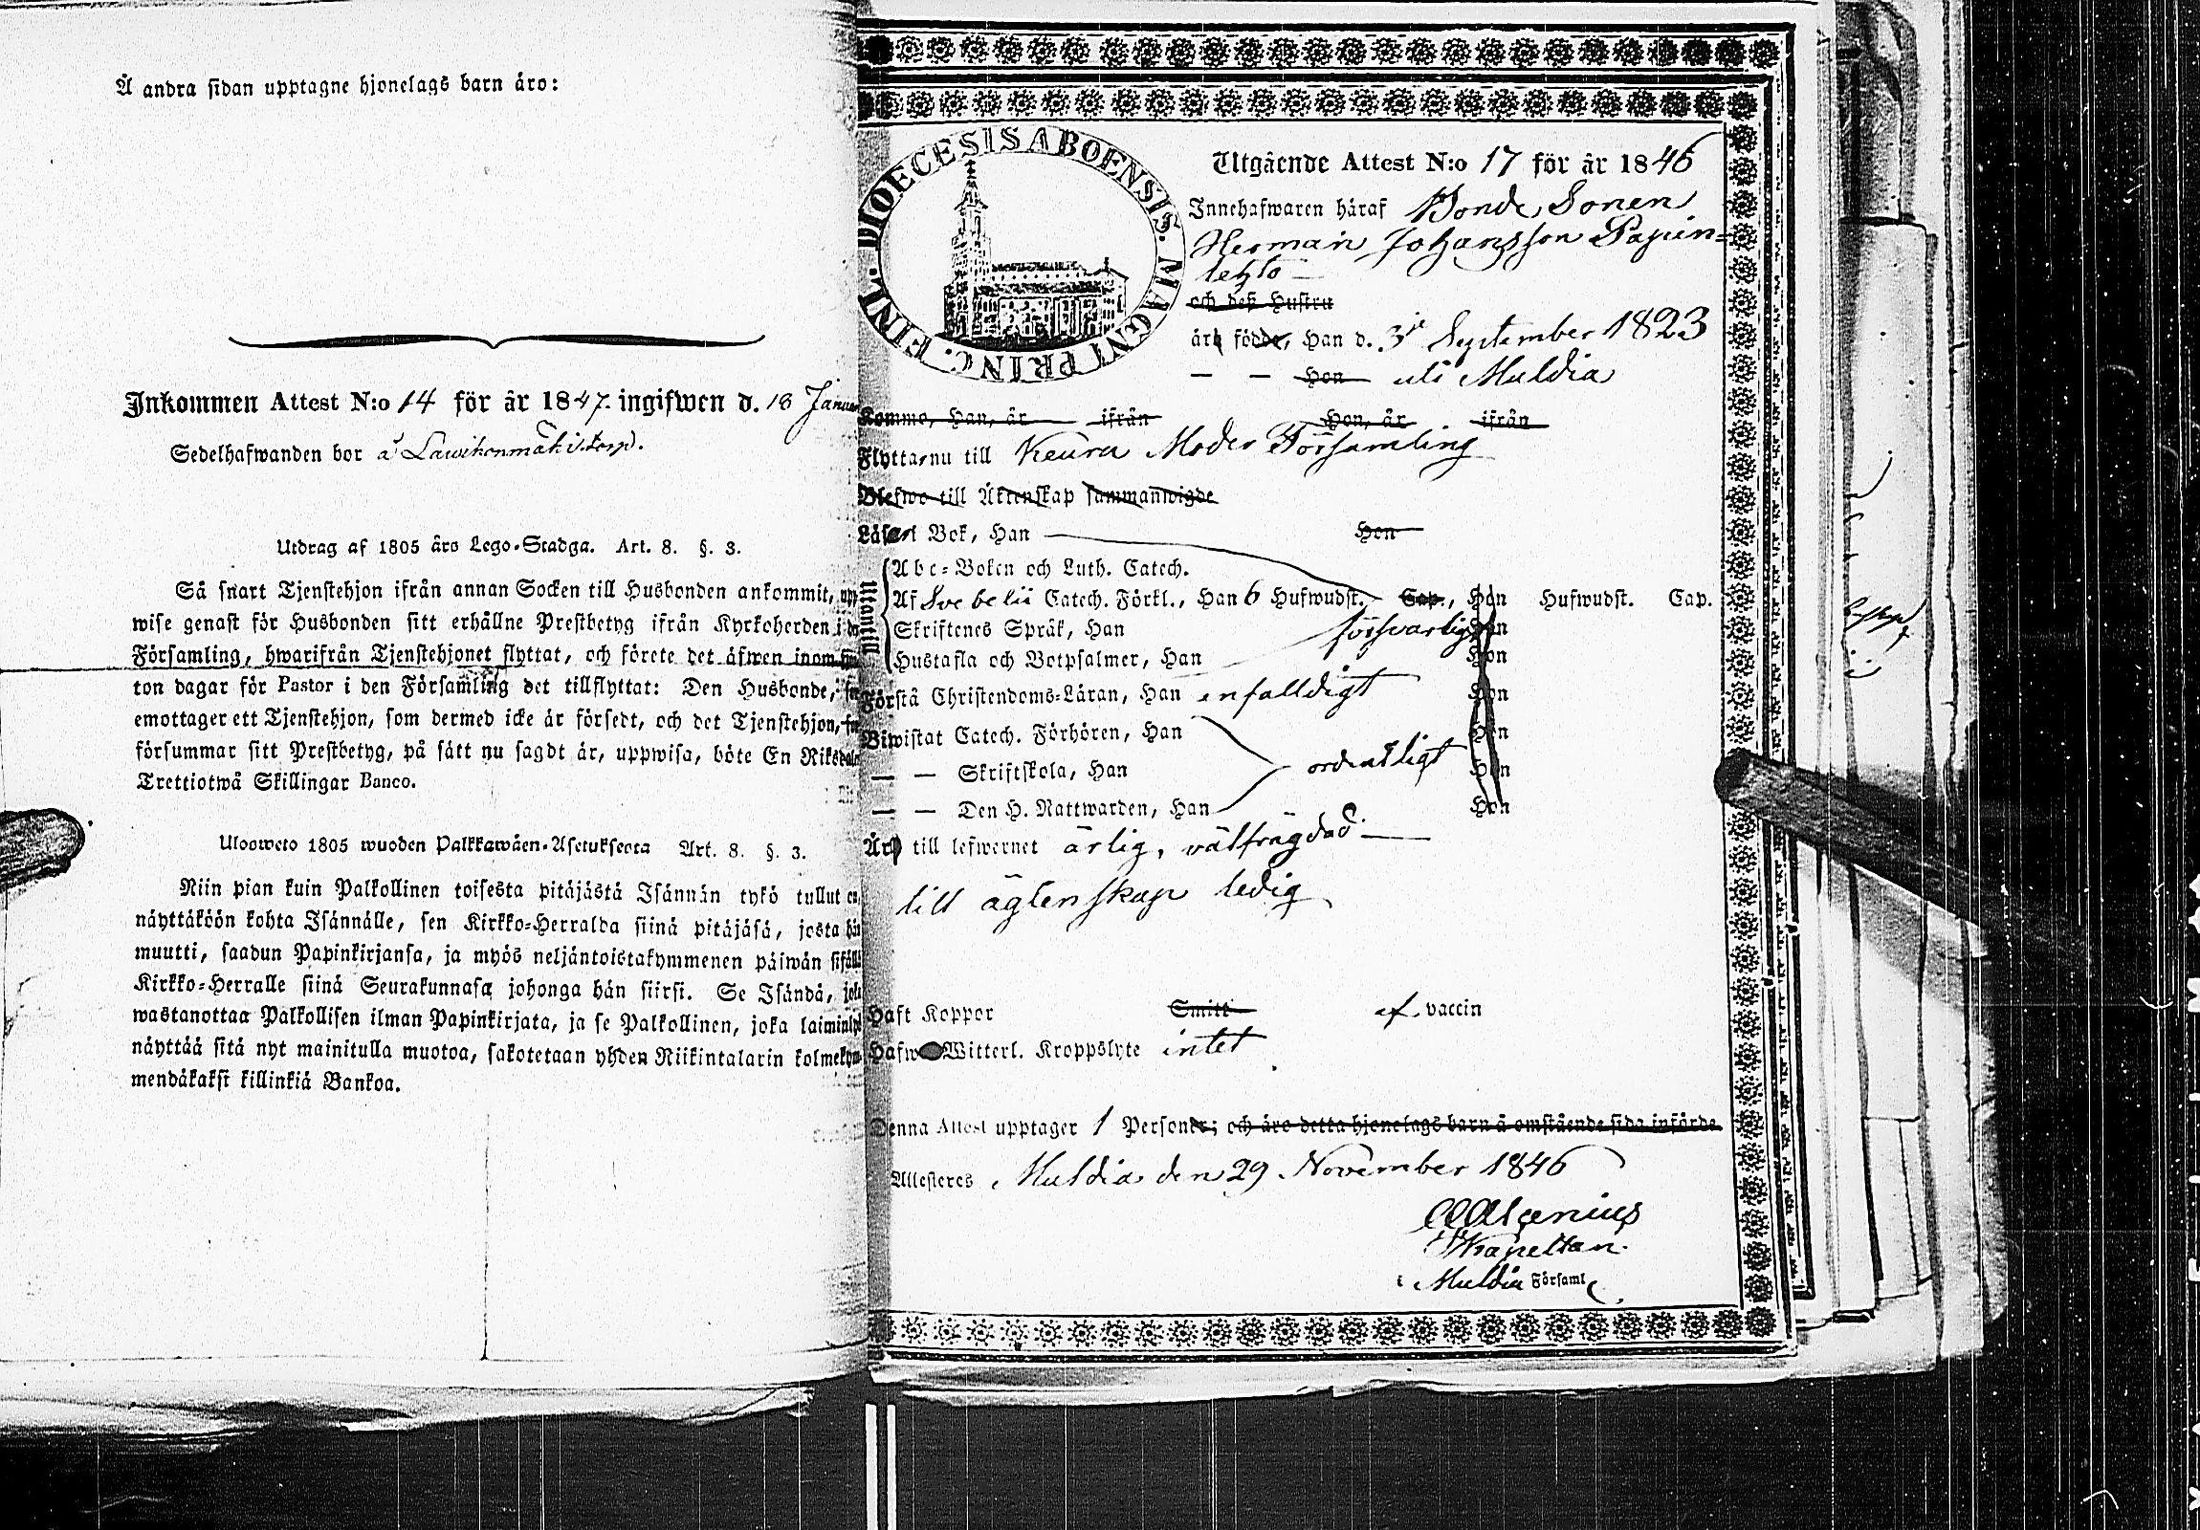 Å andra sidan upptagne hjonelags barn äro:
Inkommen Attest N:o 14 för år 1847. ingifwen d. 18 Januar
Sedelhafwanden bor å Lawikonmäki torp.
Utdrag af 1805 års Lego-Stadga. Art. 8. §. 3.
Så snart Tjenstehjon ifrån annan Socken till Husbonden ankommit, upp
wise genast för Husbonden sitt erhållne Prestbetyg ifrån Kyrkoherden i den
Församling, hwarifrån Tjenstehjonet flyttat, och förete det äfwen inom
ton dagar för Pastor i den Församling det tillflyttat: Den Husbonde,
emottager ett Tjenstehjon, som dermed icke är försedt, och det Tjenstehjon,
försummar sitt Prestbetyg, på sätt nu sagdt är, uppwisa, böte En Riksdaler
Trettiotwå Skillingar Banco.
Ulosweto 1805 wuoden Palkkawäen-Asetuksesta Art. 8. §. 3.
Niin pian kuin Palkollinen toisesta pitäjästä Isännän tykö tullut on,
näyttäköön kohta Isännälle, sen Kirkko-Herralda siinä pitäjäsä, josta hän
muutti, saadun Papinkirjansa, ja myös neljäntoistakymmenen päiwän sisällä
Kirkko-Herralle siinä Seurakunnasa johonga hän siirsi. Se Isändä, joka
wastanottaa Palkollisen ilman Papinkirjata, ja se Palkollinen, joka laiminlyö
näyttää sitä nyt mainitulla muotoa, sakotetaan yhden Riikintalarin kolmekym-
mendäkaksi killinkiä Bankoa.
DIOECESIS ABOENSIS. MAGNI PRINC. FINL.
Utgående Attest N:o 17 för år 1846
Innehafwaren häraf Bonde Sonen
Herman Johansson Papin=
lehto
och deß Hustru
äro födde, Han d. 3je September 1823
— — Hon uti Muldia
Komme, Han, år ifrån Hon, år ifrån
Flytta nu till Keuru Moder Församling
Blefwo till Äktenskap sammanwigde
Läser i Bok, Han Hon
Utantill
Abc-Boken och Luth. Catech.
Af Svebelii Catech. Förkl., Han 6 Hufwudst. Cap., Hon Hufwudst. Cap.
Skriftenes Språk, Han försvarligt Hon
Hustafla och Botpsalmer, Han Hon
Förstå Christendoms-Läran, Han enfalldigt Hon
Biwistat Catech. Förhören, Han Hon
— — Skriftskola, Han ordentligt Hon
— — Den H. Nattwarden, Han Hon
Äro till lefwernet ärlig, välfrägdad
till ägtenskap ledig
Haft Koppor Smitt af vaccin
Hafwa Witterl. Kroppslyte intet
Denna Attest upptager 1 Personer; och äro detta hjonelags barn å omstående sida införde.
Attesteres Muldia den 29 November 1846
Kapellan.
i Muldia Församl